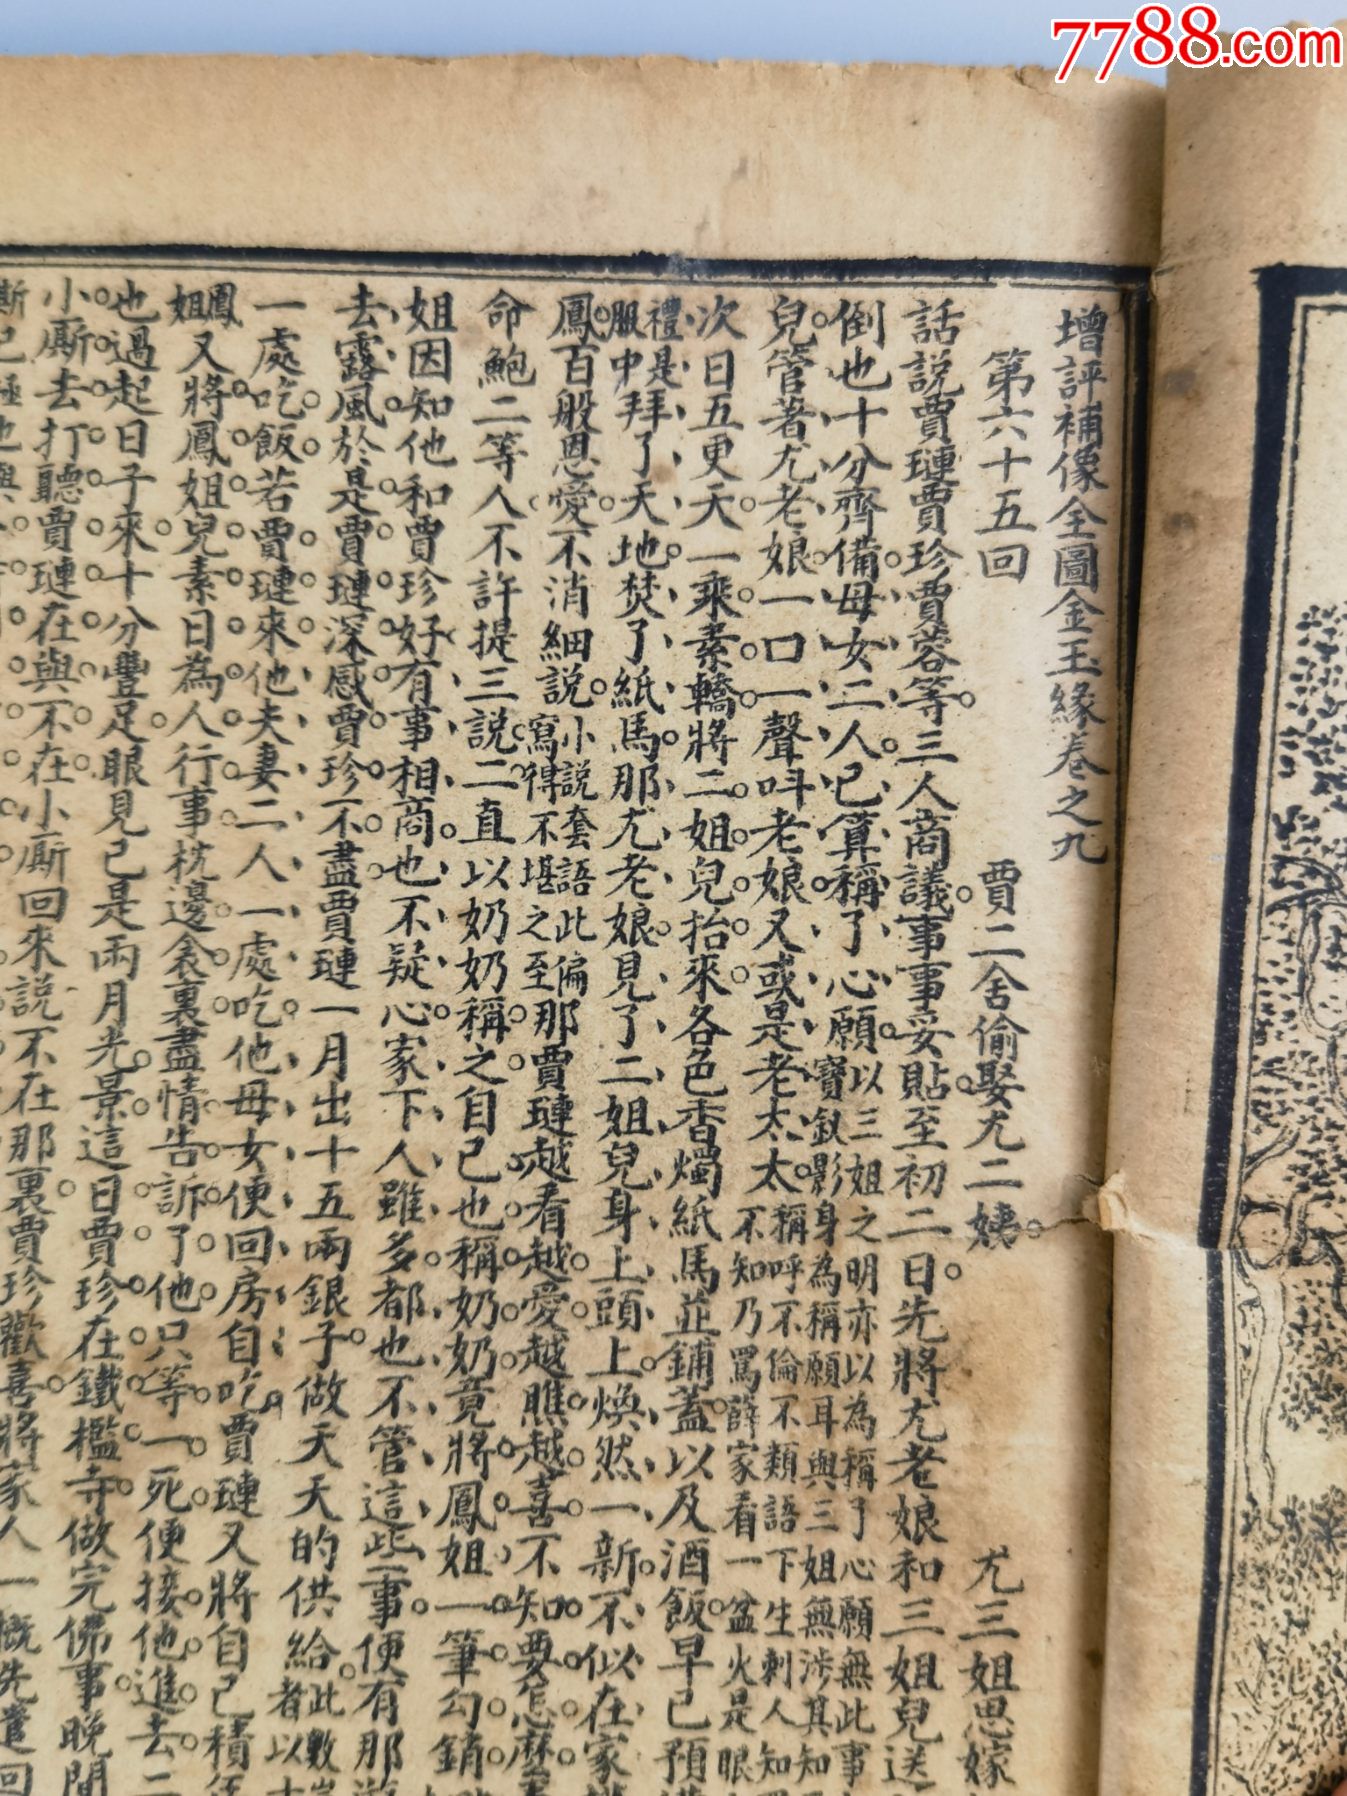 7788.com
增評補像全圖金玉緣卷之九
第六十五回 賈二舍偷娶尤二姨 尤三姐思嫁
話說賈璉賈珍賈蓉等三人商議事事妥貼至初二日先將尤老娘和三姐兒送
倒也十分齊備母女二人已算稱了心願以三姐之明亦以為稱了心願無此事
寶釵影身為稱願耳與三姐無涉其知
兒管著尤老娘一口一聲呌老娘又或是老太太稱呼不倫不類語下生刺人知
不知乃罵薛家看一盆火是眼
次日五更天一乘素轎將二姐兒抬來各色香燭紙馬並鋪蓋以及酒飯早已預備
禮是
服中拜了天地焚了紙馬那尤老娘見了二姐兒身上頭上煥然一新不似在家
鳳百般恩愛不消細說小說套語此偏
寫得不堪之至那賈璉越看越愛越瞧越喜不知要怎麼
命鮑二等人不許提三說二直以奶奶稱之自己也稱奶奶竟將鳳姐一筆勾銷
姐因知他和賈珍好有事相商也不疑心家下人雖多都也不管這些事便有那
去露風於是賈璉深感賈珍不盡賈璉一月出十五兩銀子做天天的供給此數
者以
一處吃飯若賈璉來他夫妻二人一處吃他母女便回房自吃賈璉又將自己積年
鳳
姐又將鳳姐兒素日為人行事枕邊衾裏盡情告訴了他只等一死便接他進去二
也過起日子來十分豐足眼見已是兩月光景這日賈珍在鐵檻寺做完佛事晚間
小厮去打聽賈璉在與不在小厮回來說不在那裏賈珍歡喜將家人一概先遣回